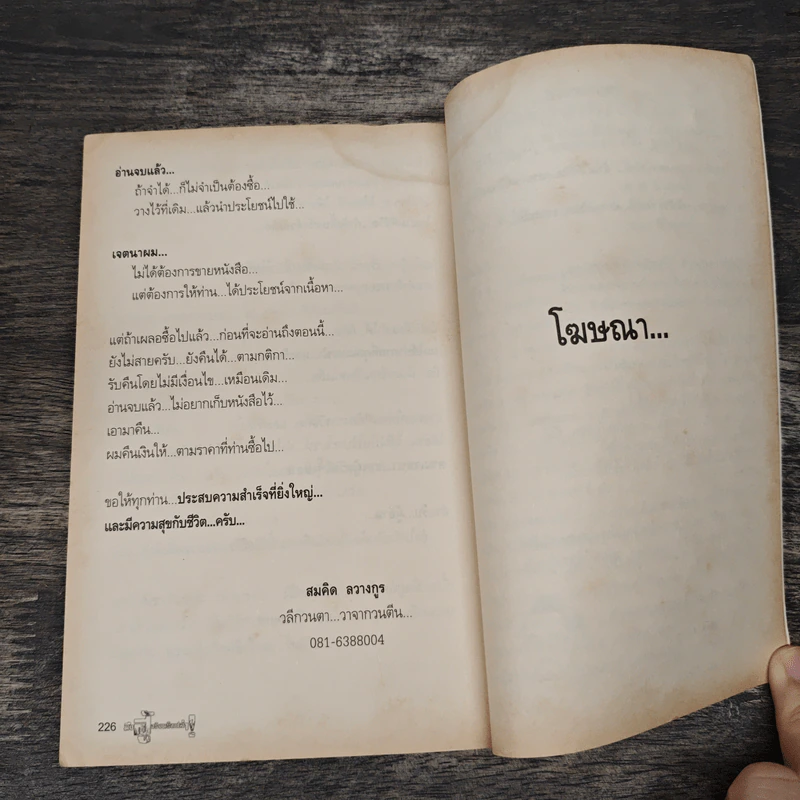 อ่านจบแล้ว...
ถ้าจำได้...ก็ไม่จำเป็นต้องซื้อ...
วางไว้ที่เดิม...แล้วนำประโยชน์ไปใช้...
เจตนาผม...
ไม่ได้ต้องการขายหนังสือ...
แต่ต้องการให้ท่าน...ได้ประโยชน์จากเนื้อหา...
แต่ถ้าเผลอซื้อไปแล้ว...ก่อนที่จะอ่านถึงตอนนี้...
ยังไม่สายครับ...ยังคืนได้...ตามกติกา...
รับคืนโดยไม่มีเงื่อนไข...เหมือนเดิม...
อ่านจบแล้ว...ไม่อยากเก็บหนังสือไว้...
เอามาคืน...
ผมคืนเงินให้...ตามราคาที่ท่านซื้อไป...
ขอให้ทุกท่าน...ประสบความสำเร็จที่ยิ่งใหญ่...
และมีความสุขกับชีวิต...ครับ...
สมคิด ลวางกูร
วลีกวนตา...วาจากวนตีน...
081-6388004
226
โฆษณา...